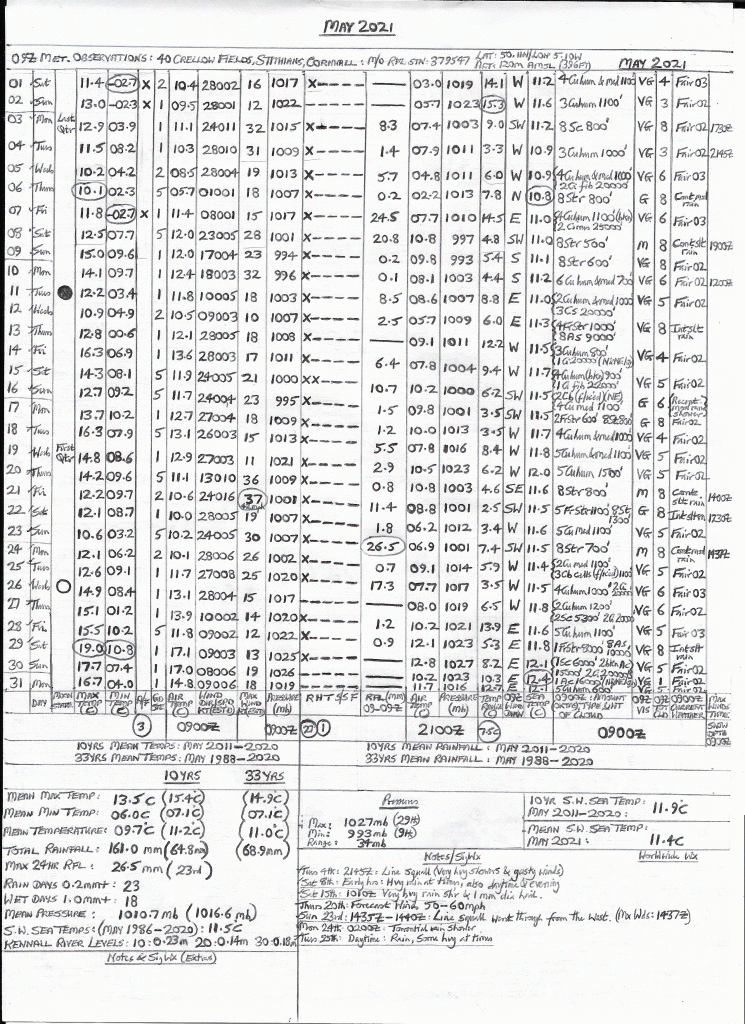 MAY 2021
09Z MET. OBSERVATIONS: 40 CRELLOW FIELDS, STITHIANS, CORNWALL: M/O RFL STN: 379547 LAT: 50.11N/LON 5.10W ALT: 120m AMSL (396FT) MAY 2021
01 Sat 11.4 -02.7 X 2 10.4 28002 16 1017 X----- — 03.0 1019 14.1 W 11.2 VG 4 Fair 03
02 Sun 13.0 -02.3 X 1 09.5 28001 12 1022 ----- — 05.7 1023 15.3 W 11.6 3Cuhum 1100' VG 3 Fair 02
03 Mon Last Qtr 12.9 03.9 1 11.1 24011 32 1015 X----- 8.3 07.4 1003 9.0 SW 11.2 8Sc 800' VG 8 Fair 02 1730Z
04 Tues 11.5 08.2 1 10.3 28010 31 1009 X----- 1.4 07.9 1011 3.3 W 10.9 3Cuhum 1000' VG 3 Fair 02 2145Z
05 Weds 10.2 04.2 2 08.5 28004 19 1013 X----- 5.7 04.8 1011 6.0 W 10.9 VG 6 Fair 02
06 Thurs 10.1 02.3 5 05.7 01001 18 1007 X----- 0.2 02.2 1013 7.8 N 10.8 8Str 800' G 8
07 Fri 11.8 -02.7 X 1 11.4 08001 15 1017 X----- 24.5 07.7 1010 14.5 E 11.0 VG 6 Fair 03
08 Sat 12.5 07.7 5 12.0 23005 28 1001 X----- 20.8 10.8 997 4.8 SW 11.0 8Str 500' M 8 1900Z
09 Sun 15.0 09.6 1 12.0 17004 23 994 X----- 0.2 09.8 993 5.4 S 11.1 8Str 600' G 8 Fair 02
10 Mon 14.1 09.7 1 12.4 18003 32 996 X----- 0.1 08.1 1003 4.4 S 11.2 VG 6 Fair 02 1200Z
11 Tues 12.2 03.4 1 11.8 10005 18 1003 X----- 8.5 08.6 1007 8.8 E 11.0 VG 5 Fair 02
12 Weds 10.9 04.9 2 10.5 09003 10 1007 X----- 2.5 05.7 1009 6.0 E 11.3 VG 8
13 Thurs 12.8 00.6 1 12.1 28005 18 1008 X----- — 09.1 1011 12.2 W 11.5 VG 4 Fair 02
14 Fri 16.3 06.9 1 13.6 28003 17 1011 X----- 6.4 07.8 1004 9.4 W 11.7 VG 5 Fair 02
15 Sat 14.3 08.1 5 11.9 24005 21 1000 XX---- 10.7 10.2 1000 6.2 SW 11.5 G 6
16 Sun 12.7 09.2 5 11.7 24004 23 995 X----- 1.5 09.8 1001 3.5 SW 11.5 G 8 Fair 02
17 Mon 13.7 10.2 1 12.7 27004 18 1009 X----- 1.2 10.0 1013 3.5 W 11.7 VG 4 Fair 02
18 Tues 16.3 07.9 5 13.1 26003 15 1013 X----- 5.5 07.8 1016 8.4 W 11.8 VG 5 Fair 02
19 Weds First Qtr 14.8 08.6 1 12.9 27003 11 1021 X----- 2.9 10.5 1023 6.2 W 12.0 5Cuhum 1500' VG 5 Fair 02
20 Thurs 14.2 09.6 5 11.1 13010 36 1009 X----- 0.8 10.8 1003 4.6 SE 11.6 8Str 800' M 8 1400Z
21 Fri 12.2 09.7 2 10.6 24016 37 1001 X----- 11.4 08.8 1001 2.5 SW 11.5 G 8 1230Z
22 Sat 12.1 08.7 1 10.0 28005 19 1007 X----- 1.8 06.2 1012 3.4 W 11.6 5Cumed 1100' VG 5 Fair 02
23 Sun 10.6 03.2 5 10.2 24005 30 1007 X----- 26.5 06.9 1001 7.4 SW 11.5 8Str 700' M 8 1437Z
24 Mon 12.1 06.2 2 10.1 28006 26 1002 X----- 0.7 09.1 1014 5.9 W 11.4 VG 5 Fair 02
25 Tues 12.6 09.1 1 11.7 27008 25 1020 X----- 17.3 07.7 1017 3.5 W 11.5 VG 6 Fair 02
26 Weds 14.9 08.4 1 13.1 28004 15 1017 ----- — 08.0 1019 6.5 W 11.8 VG 6 Fair 02
27 Thurs 15.1 01.2 1 13.9 10002 14 1020 X----- 1.2 10.2 1021 13.9 E 11.6 5Cuhum 1100' VG 5 Fair 03
28 Fri 15.5 10.2 5 11.8 09002 12 1022 X----- 0.9 12.1 1023 5.3 E 11.8 VG 8
29 Sat 19.0 10.8 1 17.1 09003 13 1025 X----- — 12.8 1027 8.2 E 12.1 VG 5 Fair 02
30 Sun 17.7 07.4 1 17.0 08006 19 1026 ----- — 10.2 1023 10.3 E 12.4 VG 1 Fair 02
31 Mon 16.7 04.0 1 14.8 09006 18 1019 ----- — 11.7 1016 12.7 E 12.1 5Cuhum 600' VG 5 Fair 02
DAY MOON STATE MAX TEMP (C) MIN TEMP (C) A/F GD STE AIR TEMP (C) WIND DIR/SPD KT(ESTD) MAX WIND KT(ESTD) PRESSURE (mb) R H T S S F RFL (MM) 09-09Z AIR TEMP (C) PRESSURE (mb) TEMP RANGE (C) WIND DIRN SEA TEMP (C) 0900Z: AMOUNT (OKTAS) TYPE & HGT OF CLOUD 09Z VIS 09Z TOT CLOUD 0900Z CURRENT WEATHER MAX WINDS TIME:
3 0900Z 0900Z 27 1 2100Z 7.5c 0900Z SNOW DPTH 0900Z
10YRS MEAN TEMPS: MAY 2011-2020 10YRS MEAN RAINFALL: MAY 2011-2020
33YRS MEAN TEMPS: MAY 1988-2020 33YRS MEAN RAINFALL: MAY 1988-2020
10YRS 33YRS
MEAN MAX TEMP: 13.5C (15.4C) (14.9C)
MEAN MIN TEMP: 06.0C (07.1C) (07.1C)
MEAN TEMPERATURE: 09.7C (11.2C) (11.0C)
TOTAL RAINFALL: 161.0 mm (64.8mm) (68.9mm)
MAX 24HR RFL: 26.5 mm (23rd)
RAIN DAYS 0.2mm+: 23
WET DAYS 1.0mm+: 18
MEAN PRESSURE: 1010.7 mb (1016.6 mb)
S.W. SEA TEMPS: (MAY 1986-2020): 11.5C
KENNALL RIVER LEVELS: 10: 0.23m 20: 0.14m 30: 0.18m
Notes & Sig Wx (Extras)
Pressures
Max: 1027mb (29th)
Min: 993mb (9th)
Range: 34mb
10YR S.W. SEA TEMP: MAY 2011-2020: 11.9C
MEAN S.W. SEA TEMP: MAY 2021: 11.4C
Notes/Sig Wx
Worldwide Wx
Tues 4th: 2145Z: Line Squall (Very hvy showers & gusty winds)
Sat 8th: Early hrs: Hvy rain at times, also daytime & evening
Sat 15th: 1010Z Very hvy rain shwr & 1mm dia hail.
Thurs 20th: Forecast Winds 50-60mph
Sun 23rd: 1435Z-1440Z: Line squall went through from the West. (Mx Wds: 1437Z)
Mon 24th 0200Z: Torrential rain shower
Tues 25th: Daytime: Rain, Some hvy at times